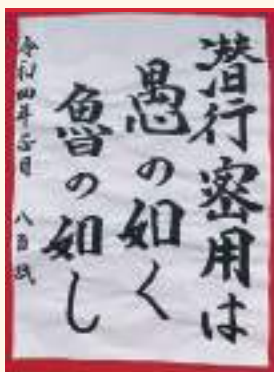 潜行密用は
愚の如く
魯の如し
令和四年正月 八百媛